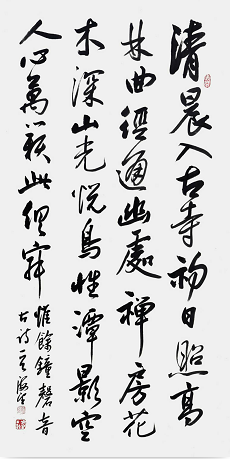 清晨入古寺初日照高
林曲徑通幽處禅房花
木深山光悦鳥性潭影空
人心萬籟此俱寂惟餘鐘磬音
古诗一首